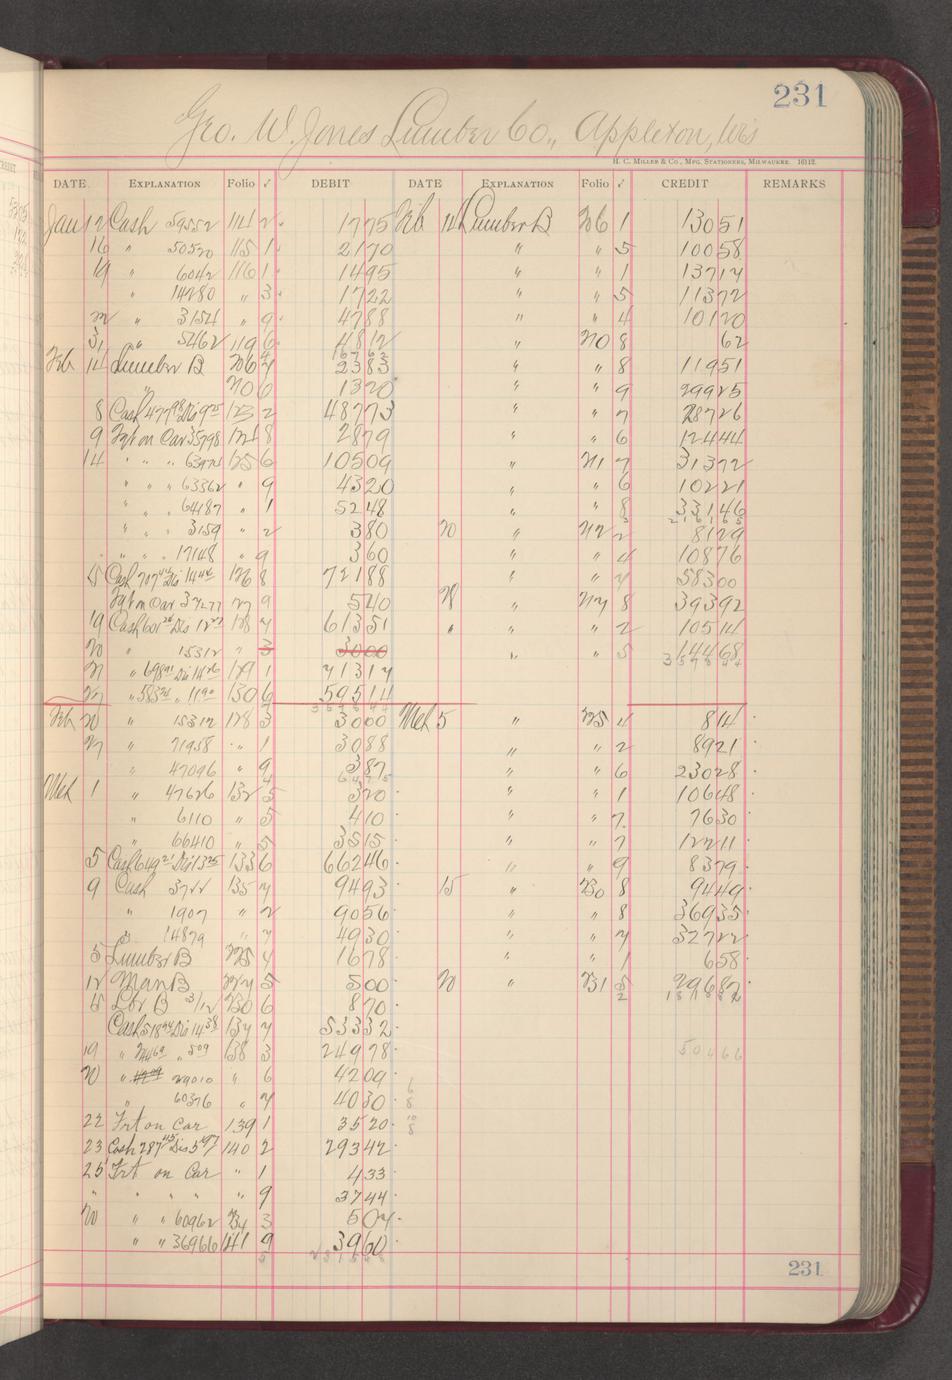 231
Geo. W. Jones Lumber Co., Appleton, Wis
H. C. MILLER & CO., MFG. STATIONERS, MILWAUKEE. 16112.
DATE EXPLANATION Folio √ DEBIT DATE EXPLANATION Folio √ CREDIT REMARKS
Jan 12 Cash 59552 114 2 1775 Feb 14 Lumber B 206 1 13051
16 " 50520 115 1 2170 " " 5 10058
19 " 6042 116 1 1495 " " 1 13714
" 14280 " 3 1722 " " 5 11372
22 " 3154 " 9 4788 " " 4 10120
31 " 5462 119 6 4812 " 210 8 62
Feb 14 Lumber B 206 4 2383 " " 8 11951
" 210 6 1320 " " 9 29925
8 Cash 477 98 Dis 9 75 123 2 48773 " " 7 28726
9 Frt on Car 35798 124 8 2879 " " 6 12444
14 " " " 63974 125 6 10509 " 211 7 31372
" " " 63362 " 9 4320 " " 6 10221
" " " 64187 " 1 5248 " " 8 33146
" " " 3159 " 2 380 20 " 212 2 8129
" " " 17148 " 9 360 " " 4 10876
15 Cash 707 44 Dis 14 44 126 8 72188 " " 4 58300
Frt on Car 37277 127 9 540 28 " 217 8 39392
19 Cash 601 24 Dis 12 27 128 7 61351 " " " 2 10514
20 " 15312 " 3 3000 " " 5 14468
27 " 698 91 Dis 14 26 129 1 71317
27 " 583 24 " 11 90 130 6 59514
Feb 20 " 15312 128 3 3000 Mch 5 " 225 4 814
27 " 71958 " 1 3088 " " 2 8921
" 47096 " 9 387 " " 6 23028
Mch 1 " 47626 132 5 320 " " 1 10648
" 6110 " 5 410 " " 7 7630
" 66410 " 5 3515 " " 7 12211
5 Cash 649 21 Dis 13 25 133 6 66246 " " 9 8379
9 Cash 3722 135 7 9493 15 " 230 8 9449
" 1907 " 2 9056 " " 8 36935
" 14879 " 7 4930 " " 7 32722
5 Lumber B 225 4 1678 " " 1 658
12 Man B 227 5 500 20 " 231 5 29682
15 Lbr B 3/12 230 6 870
Cash 518 94 Dis 14 38 137 7 53332
19 " 244 69 " 5 09 138 3 24978 50466
20 " 29010 " 6 4209
" 60376 " 7 4030
22 Frt on Car 139 1 3520
23 Cash 287 45 Dis 5 97 140 2 29342
25 Frt on Car " 1 433
" " " " " 9 3744
20 " " 60962 234 3 507
" " 36966 141 9 3960
231